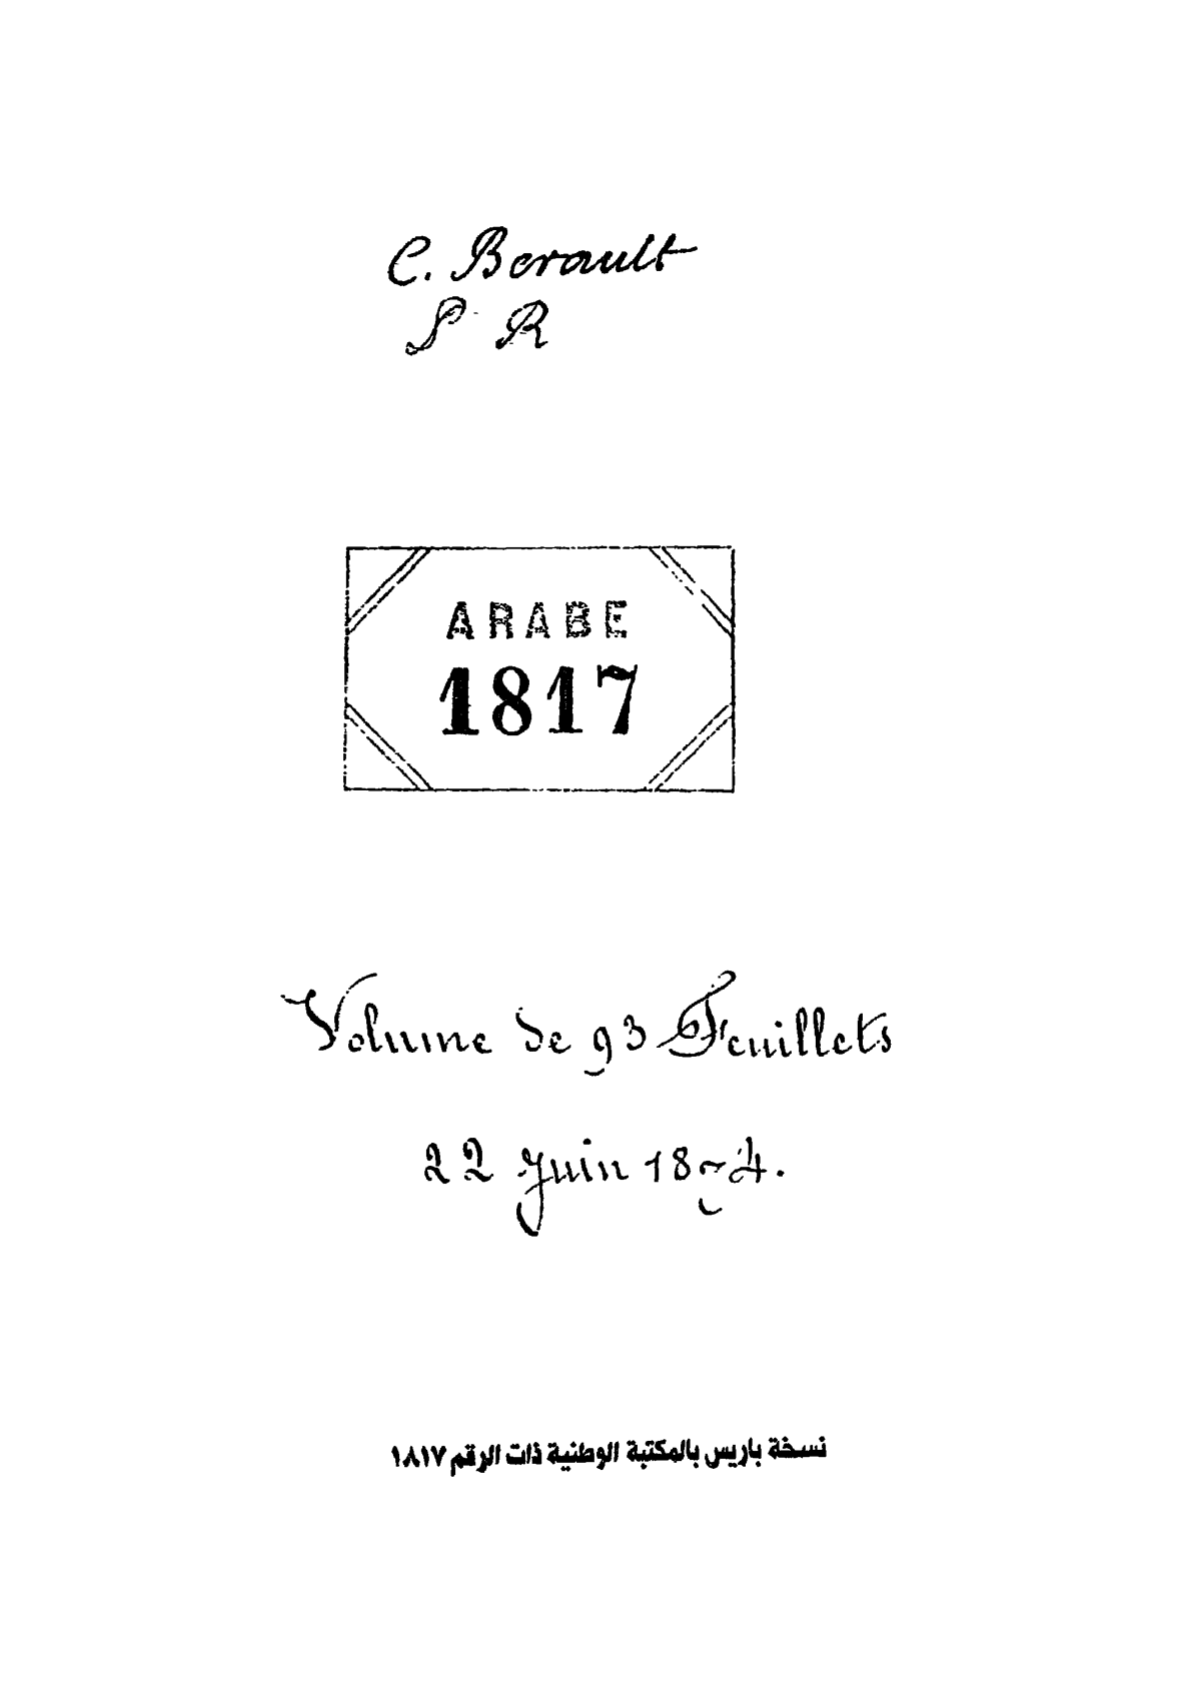 C. Berault
S R
ARABE
1817
Volume de 93 Feuillets
22 Juin 1874.
نسخة باريس بالمكتبة الوطنية ذات الرقم ١٨١٧